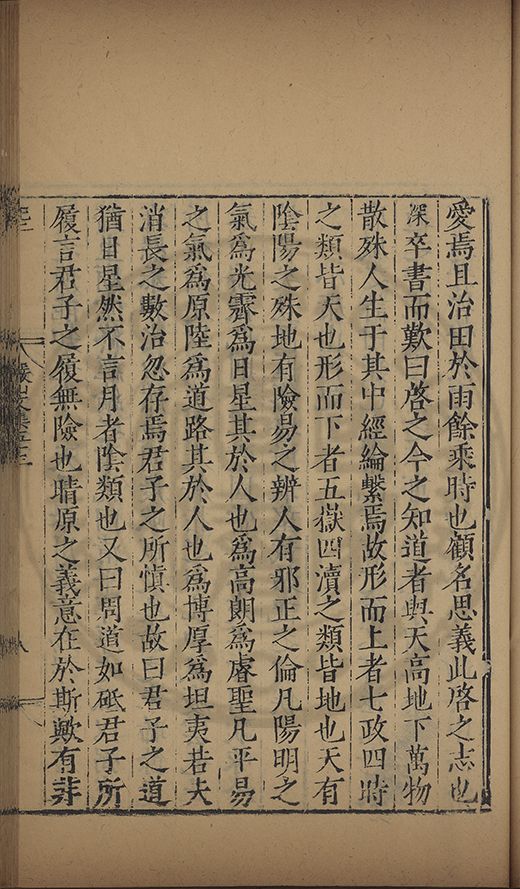 愛焉且治田於雨餘乘時也顧名思義此啓之志也
深卒書而歎曰啓之今之知道者與天高地下萬物
散殊人生于其中經綸繫焉故形而上者七政四時
之類皆天也形而下者五嶽四瀆之類皆地也天有
陰陽之殊地有險易之辨人有邪正之倫凡陽明之
氣爲光霽爲日星其於人也爲高朗爲睿聖凡平易
之氣爲原陸爲道路其於人也爲博厚爲坦夷若夫
消長之數治忽存焉君子之所慎也故曰君子之道
猶日星然不言月者陰類也又曰周道如砥君子所
履言君子之履無險也晴原之義意在於斯歟有非